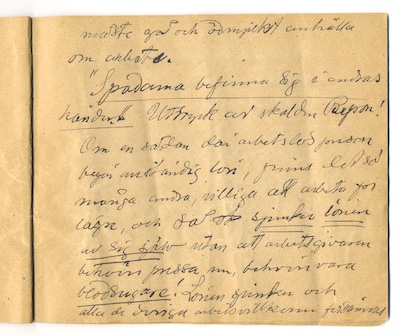 måste gå och ödmjukt anhålla
om arbete.
"Spadarna befinna sig i andras
händer." Uttryck av skalden
Om en sådan där arbetslös person
begär anständig lön, finns det så
många andra, villiga att arbeta för
lägre, och då sjunker lönen
av sig själv utan att arbetsgivaren
behöver pressa ner, behöver vara
blodsugare! Lönen sjunker och
alla de övriga arbetsvillkoren försämras